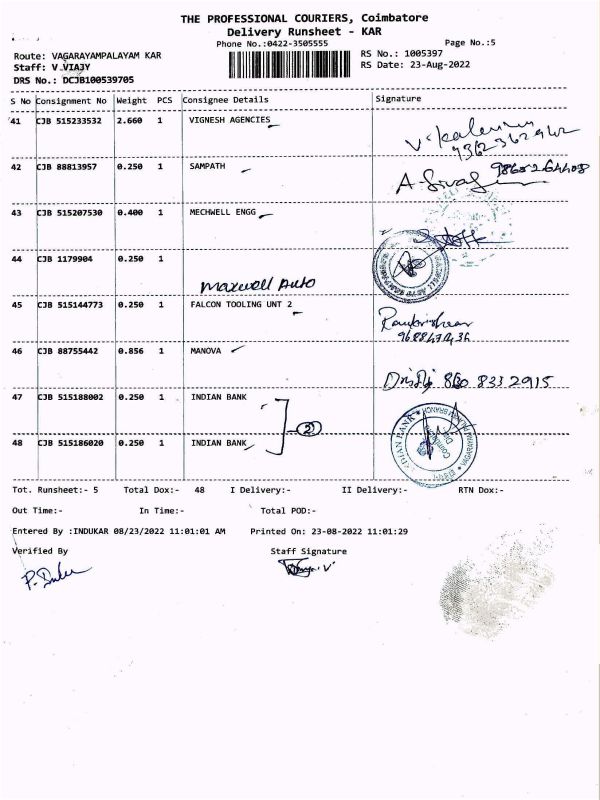 THE PROFESSIONAL COURIERS, Coimbatore
Delivery Runsheet - KAR
Phone No.:0422-3505555
Page No.:5
Route: VAGARAYAMPALAYAM KAR
RS No.: 1005397
Staff: V VIAJY
RS Date: 23-Aug-2022
DRS No.: DCJB100539705
S No Consignment No Weight PCS Consignee Details Signature
41 CJB 515233532 2.660 1 VIGNESH AGENCIES
42 CJB 88813957 0.250 1 SAMPATH
43 CJB 515207530 0.400 1 MECHWELL ENGG
44 CJB 1179904 0.250 1
Maxwell Auto
45 CJB 515144773 0.250 1 FALCON TOOLING UNT 2
46 CJB 88755442 0.856 1 MANOVA
860 833 2915
47 CJB 515188002 0.250 1 INDIAN BANK
2
48 CJB 515186020 0.250 1 INDIAN BANK
Tot. Runsheet:- 5 Total Dox:- 48 I Delivery:- II Delivery:- RTN Dox:-
Out Time:- In Time:- Total POD:-
Entered By :INDUKAR 08/23/2022 11:01:01 AM Printed On: 23-08-2022 11:01:29
Verified By Staff Signature